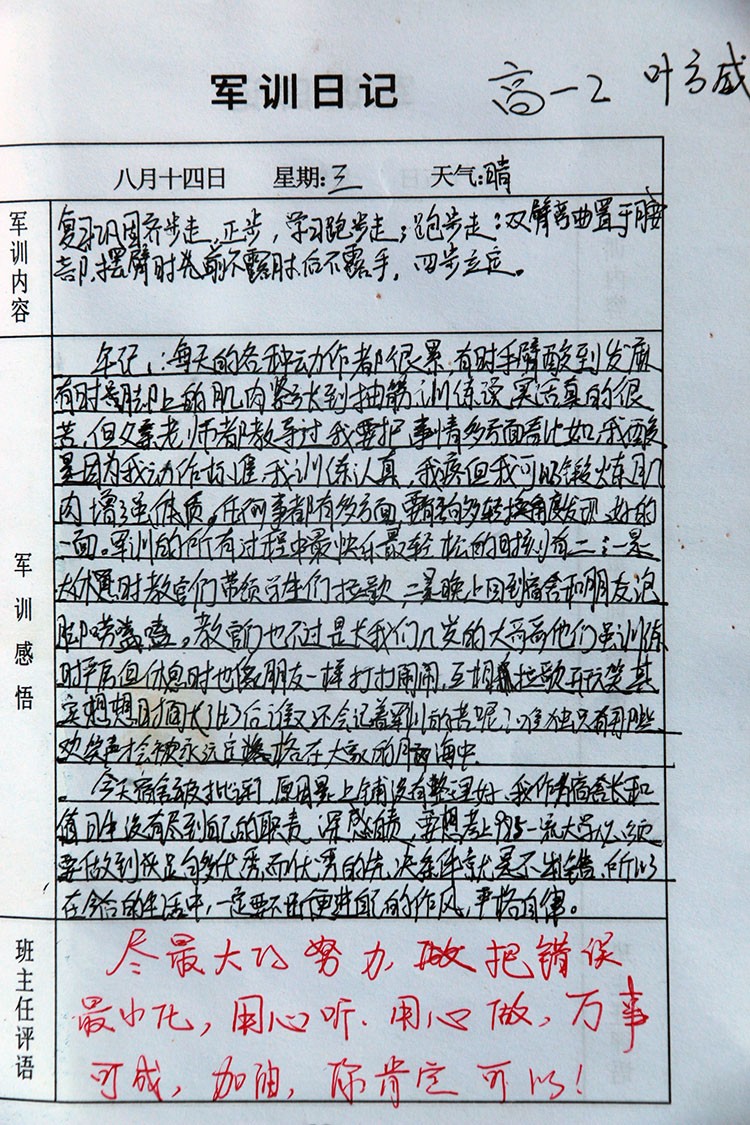 军训日记
高一2 叶方威
八月十四日 星期:三 天气:晴
军训内容
复习巩固齐步走,正步,学习跑步走;跑步走:双臂弯曲置于腰
部,摆臂时先前不露肘,后不露手,四步立定。
军训感悟
每天的各种动作都很累,有时手臂酸到发麻
有时是脚上的肌肉紧张到抽筋,训练说实话真的很
苦,但父亲老师都教导过我要把事情多方面看比如,我酸
是因为我动作标准,我训练认真,我疼但我可以锻炼肌
肉增强体质。任何事都有多方面,要多转换角度发现好的
一面。军训的所有过程中最快乐最轻松的时刻有二:一是
大休息时教官们带领学生们拉歌,二是晚上回到宿舍和朋友泡
脚唠嗑。教官们也不过是大我们几岁的大哥哥他们虽训练
时严厉但休息时也像朋友一样打打闹闹,互相拉歌开玩笑,其
实想想时间大化了后谁又还会记着军训的苦呢?唯独只有那些
欢笑声才会被永远定格在大家的脑海中。
今天宿舍被批评了,原因是上铺没有整理好,我作为宿舍长和
值日生没有尽到自己的职责,深感自责,要想考上995一流大学必须
要做到优秀,而优秀的先决条件就是不出错,所以
在今后的生活中,一定要不断改进自己的作风,严格自律。
班主任评语
尽最大的努力,做把错误
最小化,用心听、用心做,万事
可成,加油,你肯定可以!